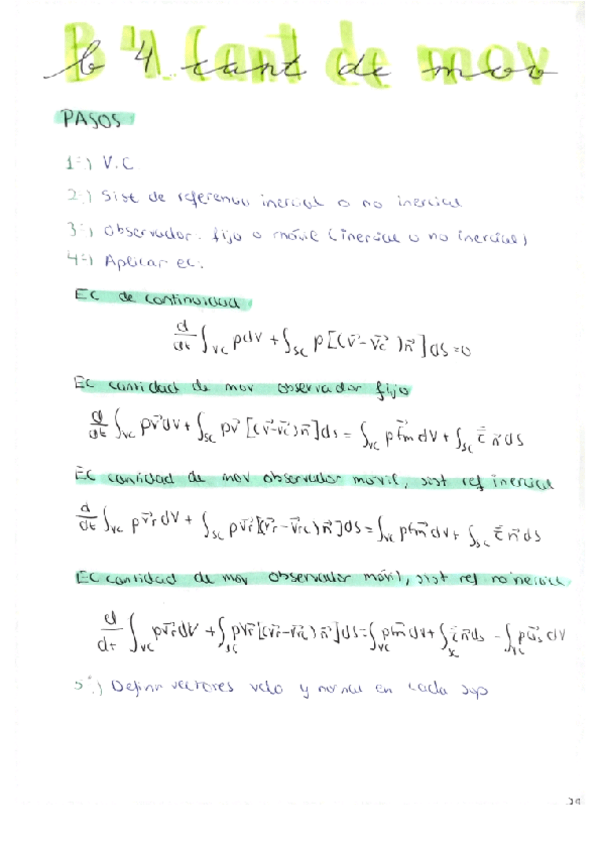 B 4. Cant de mov
b 4 cant de mov
PASOS
1º) V.C.
2º) Sist de referencia inercial o no inercial
3º) Observador. fijo o móvil (inercial o no inercial)
4º) Aplicar ec:
Ec de continuidad
d/dt ∫VC ρdV + ∫SC ρ[(v⃗-v⃗c)n⃗]dS=0
Ec cantidad de mov observador fijo
d/dt ∫VC ρv⃗dV + ∫SC ρv⃗ [(v⃗-v⃗c)n⃗]ds = ∫VC ρf⃗m dV + ∫SC τ̿ n⃗ dS
Ec cantidad de mov observador movil, sist ref inercial
d/dt ∫VC ρv⃗r dV + ∫SC ρv⃗r[(v⃗r-v⃗rc)n⃗]dS = ∫VC ρf⃗m dV + ∫SC τ̿ n⃗ dS
Ec cantidad de mov observador móvil, sist ref no inercial
d/dt ∫VC ρv⃗r dV + ∫SC ρv⃗r[(v⃗r-v⃗rc)n⃗]dS = ∫VC ρf⃗m dV + ∫SC τ̿ n⃗ ds - ∫VC ρa⃗s dV
5º) Definir vectores velo y normal en cada sup